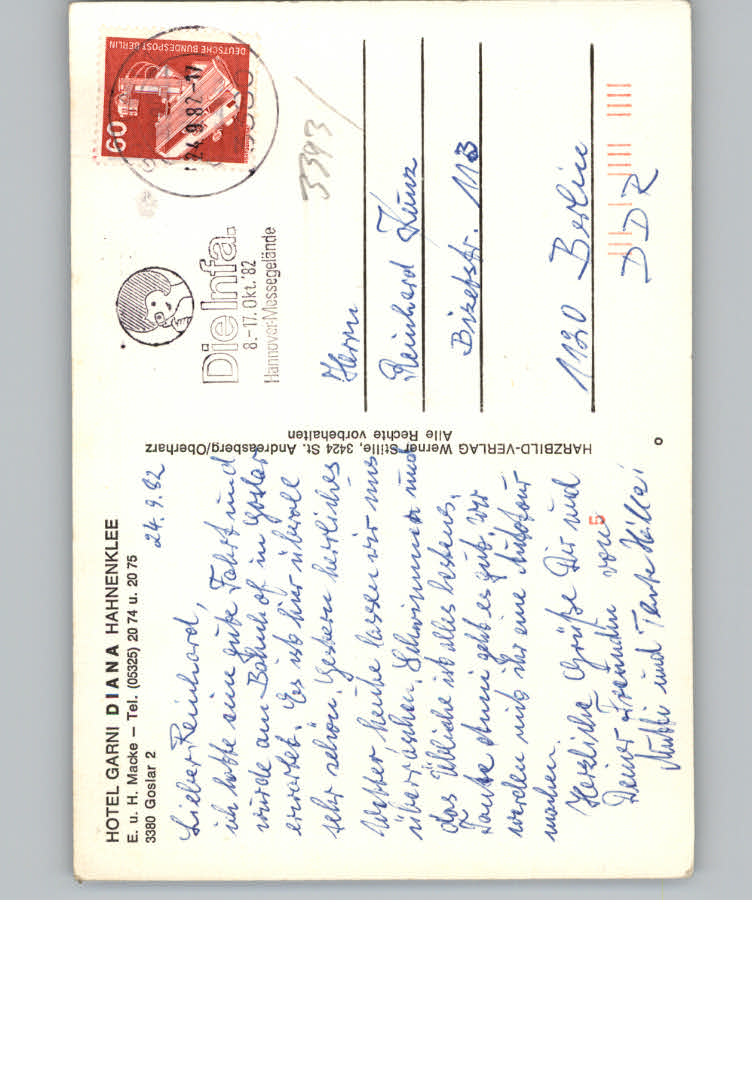 HOTEL GARNI DIANA HAHNENKLEE
E. u. H. Macke – Tel. (05325) 20 74 u. 20 75
3380 Goslar 2
24.9.82
Lieber Reinhard,
ich hatte eine gute Fahrt und
wurde am Bahnhof in Goslar
erwartet. Es ist hier überall
sehr schön. Gestern herrliches
Wetter, heute lassen wir uns
überraschen. Schwimmen und
das Übliche ist alles bestens.
Tante Anni geht es gut. Wir
werden mit ihr eine Autotour
machen.
Herzliche Grüße Dir und
Deinen Freunden von
Mutti und Tante
5
HARZBILD-VERLAG Werner Stille, 3424 St. Andreasberg/Oberharz
Alle Rechte vorbehalten
DEUTSCHE BUNDESPOST BERLIN
60
24.9.82-17
Die Infa.
8.-17. Okt. '82
Hannover-Messegelände
3393
Herrn
Reinhard Kunz
Bizetstr. 113
1120 Berlin
DDR